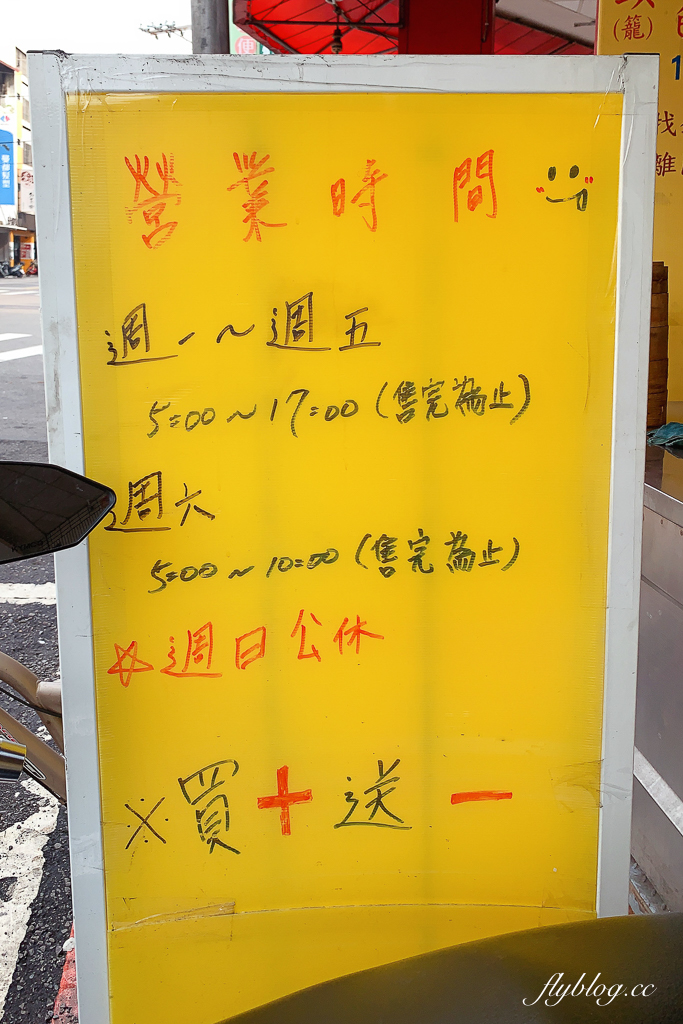 營業時間
週一~週五
5:00~17:00(售完為止)
週六
5:00~10:00(售完為止)
☆週日公休
※買十送一
(籠)
便
flyblog.cc